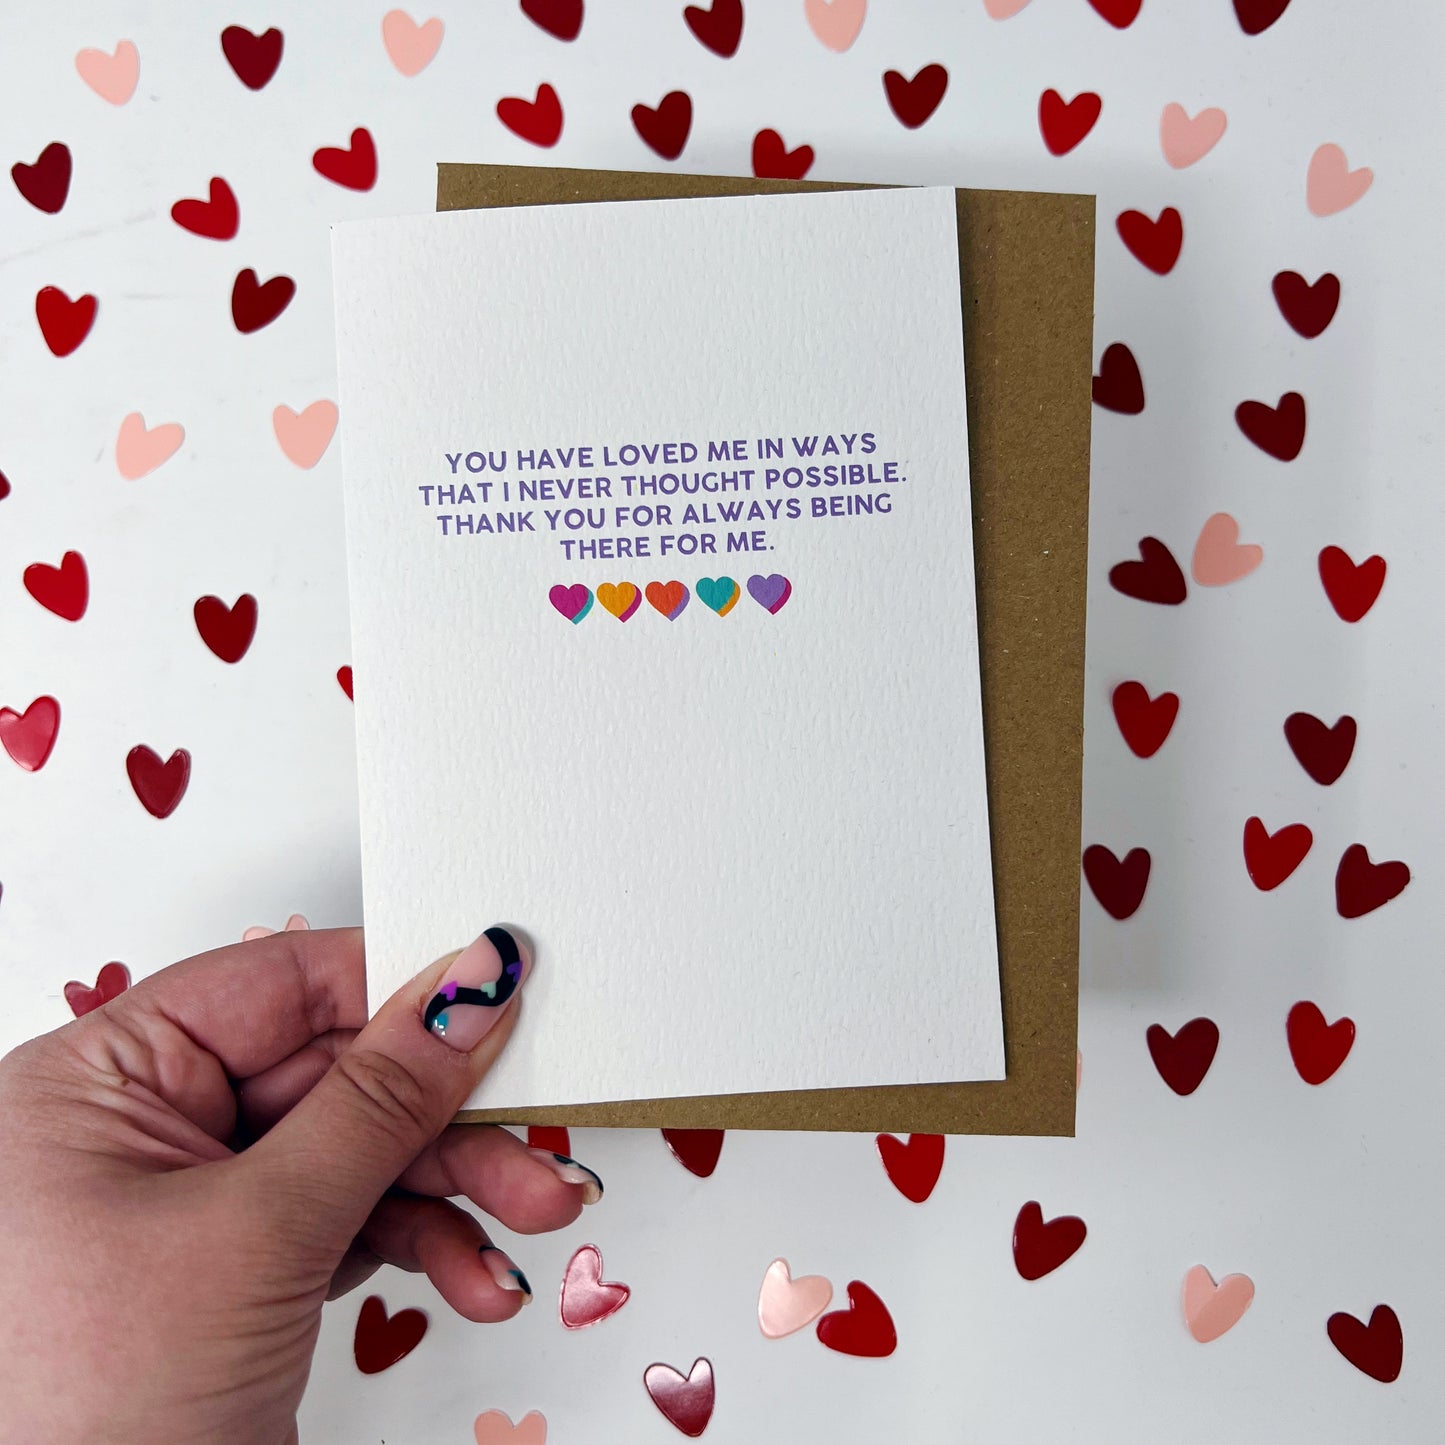 YOU HAVE LOVED ME IN WAYS
THAT I NEVER THOUGHT POSSIBLE.
THANK YOU FOR ALWAYS BEING
THERE FOR ME.